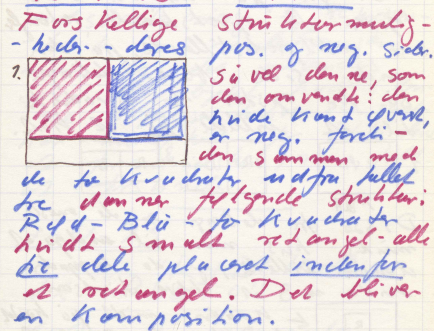 Forskellige strukturmulig-
-heder - deres pos. og neg. sider.
1.
såvel denne, som
den omvendte: den
hvide kant øverst,
er neg. fordi -
den sammen med
de to kvadrater udfra tallet
tre danner følgende struktur:
Rød - Blå - to kvadrater
hvidt smalt retangel - alle
tre dele placeret indenfor
et retangel. Det bliver
en komposition.